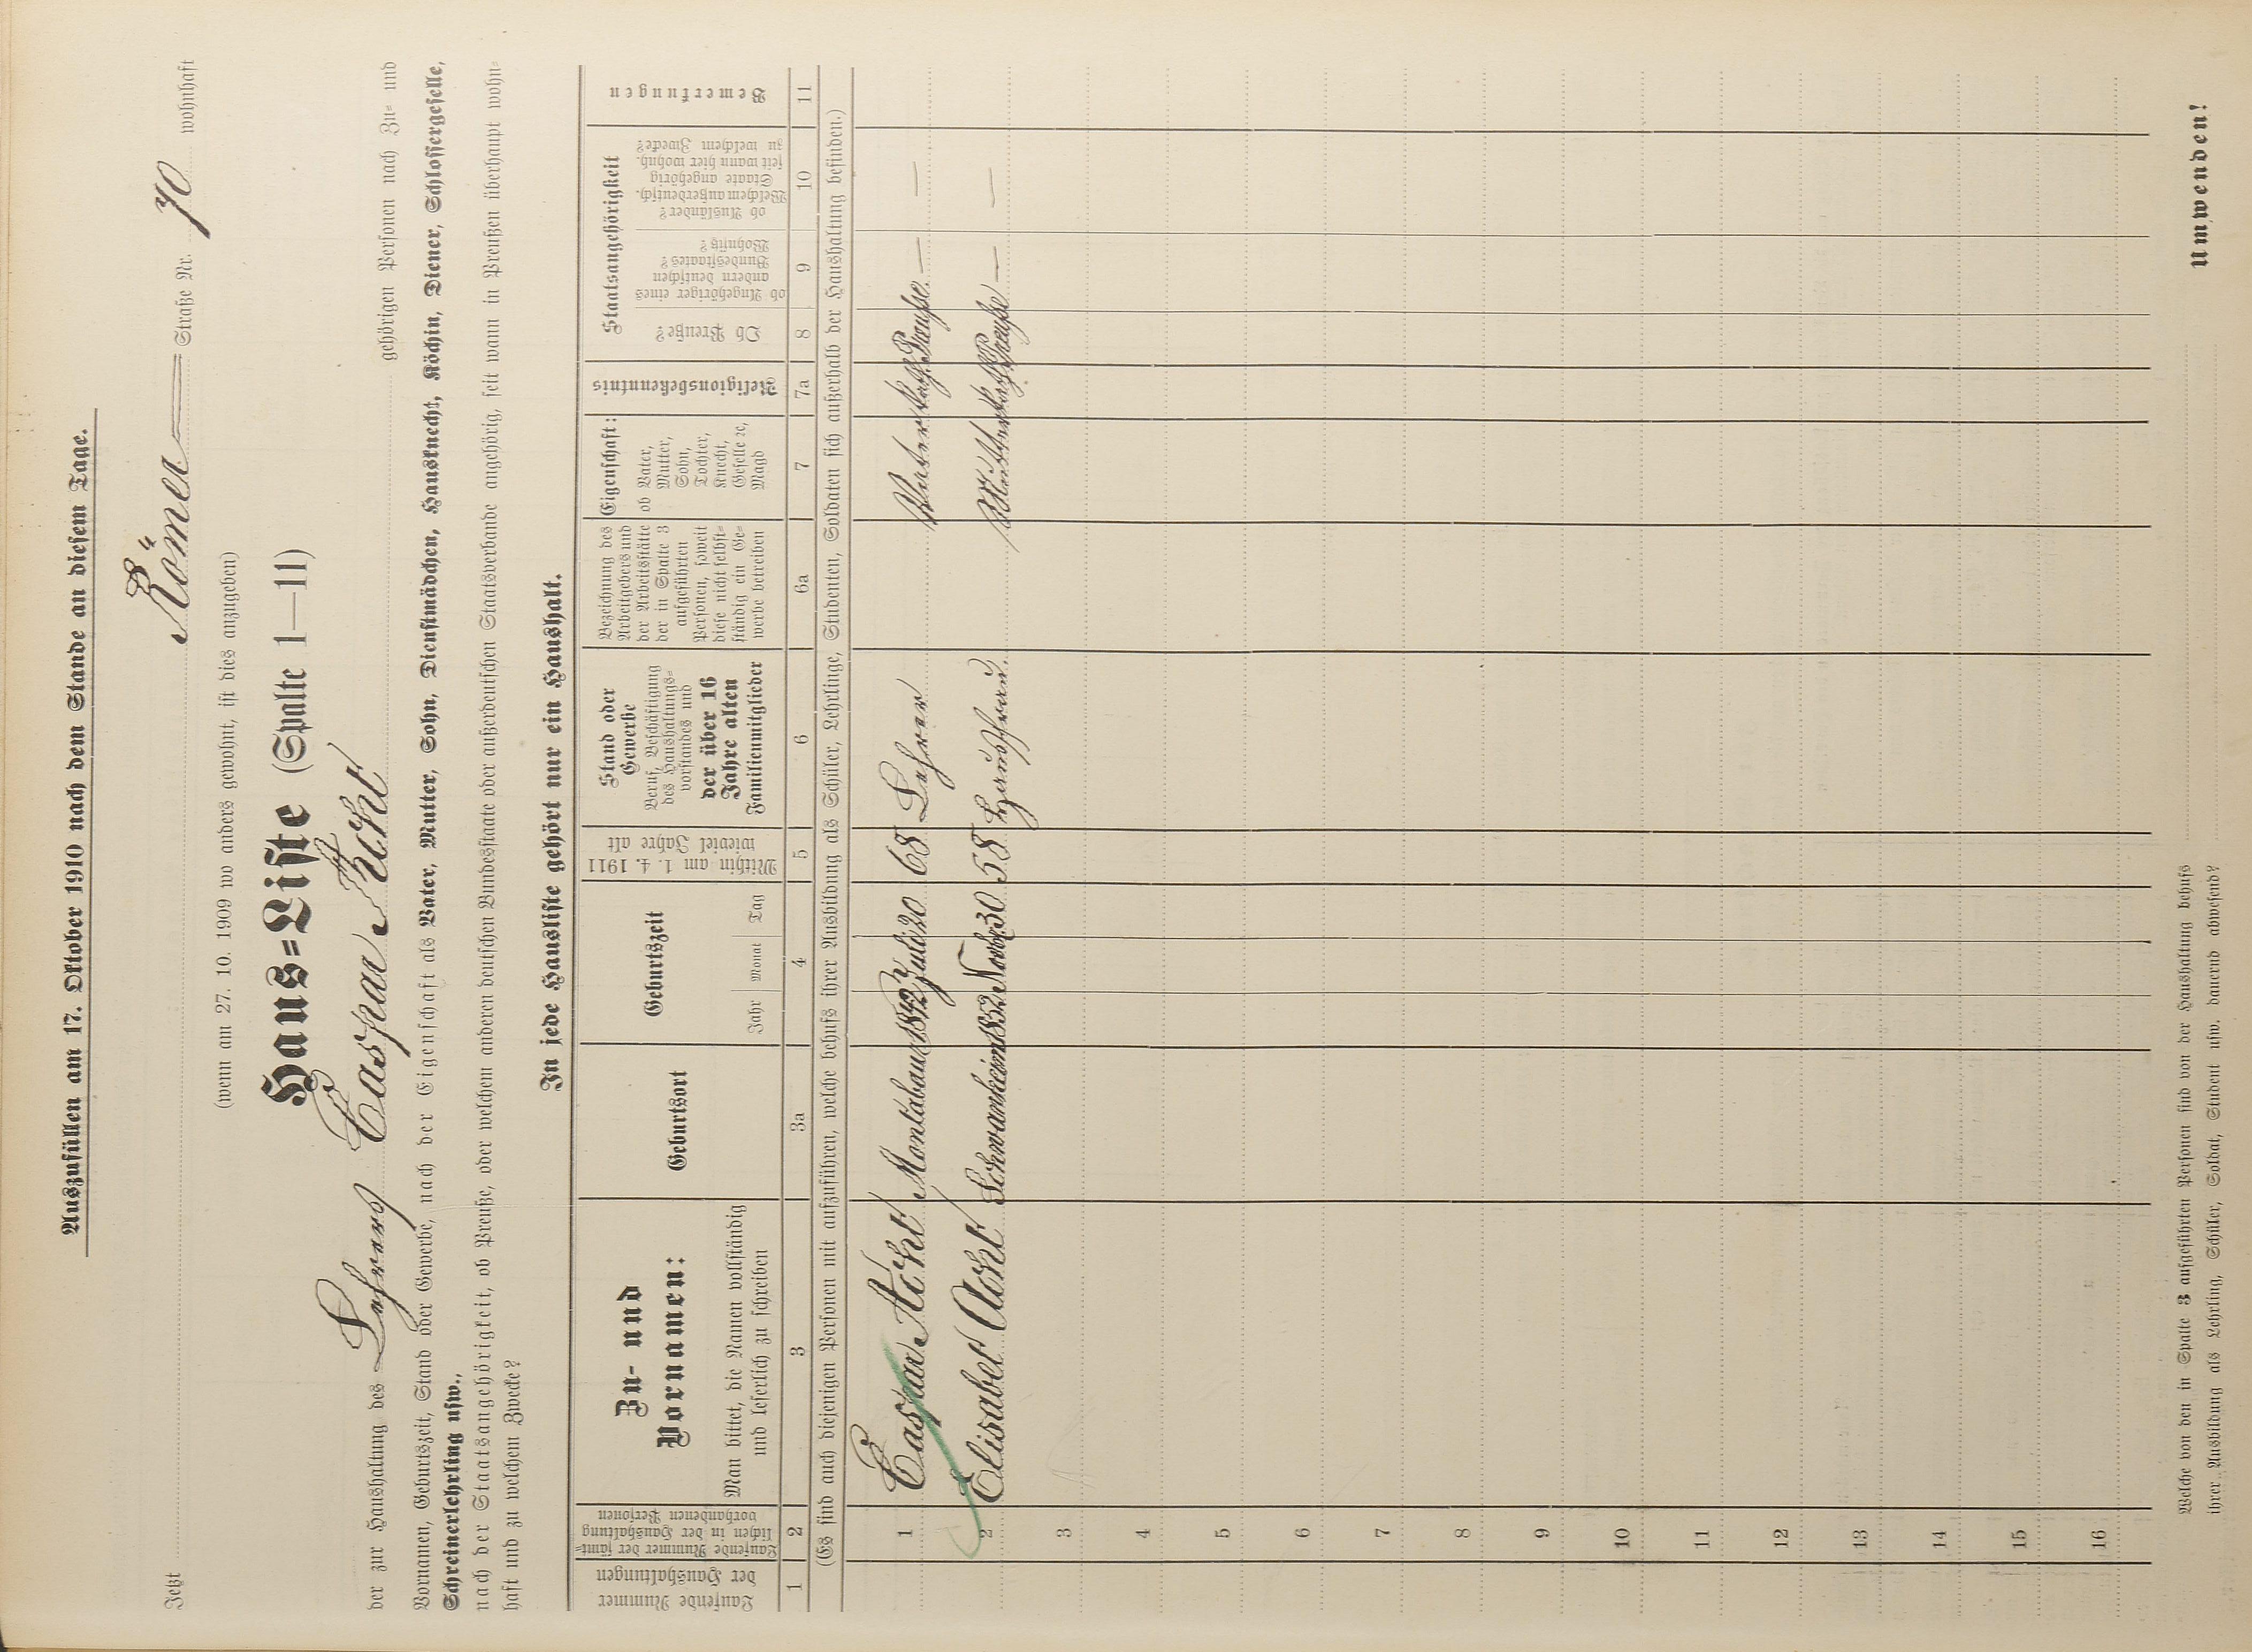 Auszufüllen am 17. Oktober 1910 nach dem Stande an diesem Tage.
Jetzt Römer Straße Nr. 70 wohnhaft
(wenn am 27. 10. 1909 wo anders gewohnt, ist dies anzugeben)
Haus=Liste (Spalte 1—11)
der zur Haushaltung des Lehrers Caspar Acht gehörigen Personen nach Zu= und
Vornamen, Geburtszeit, Stand oder Gewerbe, nach der Eigenschaft als Vater, Mutter, Sohn, Dienstmädchen, Hausknecht, Köchin, Diener, Schlossergeselle,
Schreinerlehrling usw.,
nach der Staatsangehörigkeit, ob Preuße, oder welchem anderen deutschen Bundesstaate oder außerdeutschen Staatsverbande angehörig, seit wann in Preußen überhaupt wohn=
haft und zu welchem Zwecke?
In jede Hausliste gehört nur ein Haushalt.
Laufende Nummer
der Haushaltungen
Laufende Nummer der sämt=
lichen in der Haushaltung
vorhandenen Personen
Zu- und
Vornamen:
Man bittet, die Namen vollständig
und leserlich zu schreiben
Geburtsort
Geburtszeit
Jahr Monat Tag
Mithin am 1. 4. 1911
wieviel Jahre alt
Stand oder
Gewerbe
Beruf, Beschäftigung
des Haushaltungs=
vorstandes und
der über 16
Jahre alten
Familienmitglieder
Bezeichnung des
Arbeitgebers und
der Arbeitsstätte
der in Spalte 3
aufgeführten
Personen, soweit
diese nicht selbst=
ständig ein Ge=
werbe betreiben
Eigenschaft:
ob Vater,
Mutter,
Sohn,
Tochter,
Knecht,
Geselle ꝛc,
Magd
Religionsbekenntnis
Staatsangehörigkeit
Ob Preuße?
ob Angehöriger eines
andern deutschen
Bundesstaates?
Wohnsitz?
ob Ausländer?
Welchem außerdeutsch.
Staate angehörig
seit wann hier wohnh.
zu welchem Zwecke?
Bemerkungen
1 2 3 3a 4 5 6 6a 7 7a 8 9 10 11
(Es sind auch diejenigen Personen mit aufzuführen, welche behufs ihrer Ausbildung als Schüler, Lehrlinge, Studenten, Soldaten sich außerhalb der Haushaltung befinden.)
1 Caspar Acht Montabaur 1842 Juli 20 68 Lehrer Vater kath. Preuße — —
2 Elisabet Acht Schwanheim 1852 Novbr. 30 58 Hausfrau Mutter kath. Preuße — —
3
4
5
6
7
8
9
10
11
12
13
14
15
16
Welche von den in Spalte 3 aufgeführten Personen sind von der Haushaltung behufs
ihrer Ausbildung als Lehrling, Schüler, Soldat, Student usw. dauernd abwesend?
Umwenden!